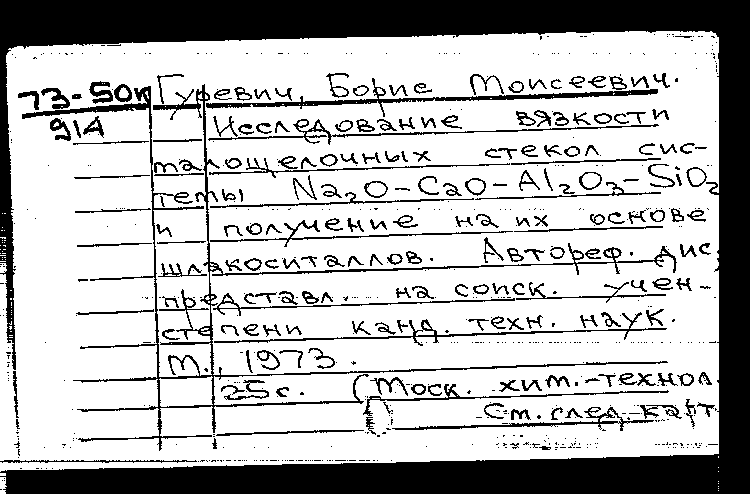 73-50к Гуревич, Борис Моисеевич.
914 Исследование вязкости
малощелочных стекол сис-
темы Na2O-CaO-Al2O3-SiO2
и получение на их основе
шлакоситаллов. Автореф. дис,
представл. на соиск. учен.
степени канд. техн. наук.
М., 1973.
25 с. (Моск. хим.-технол.
См. след. карт